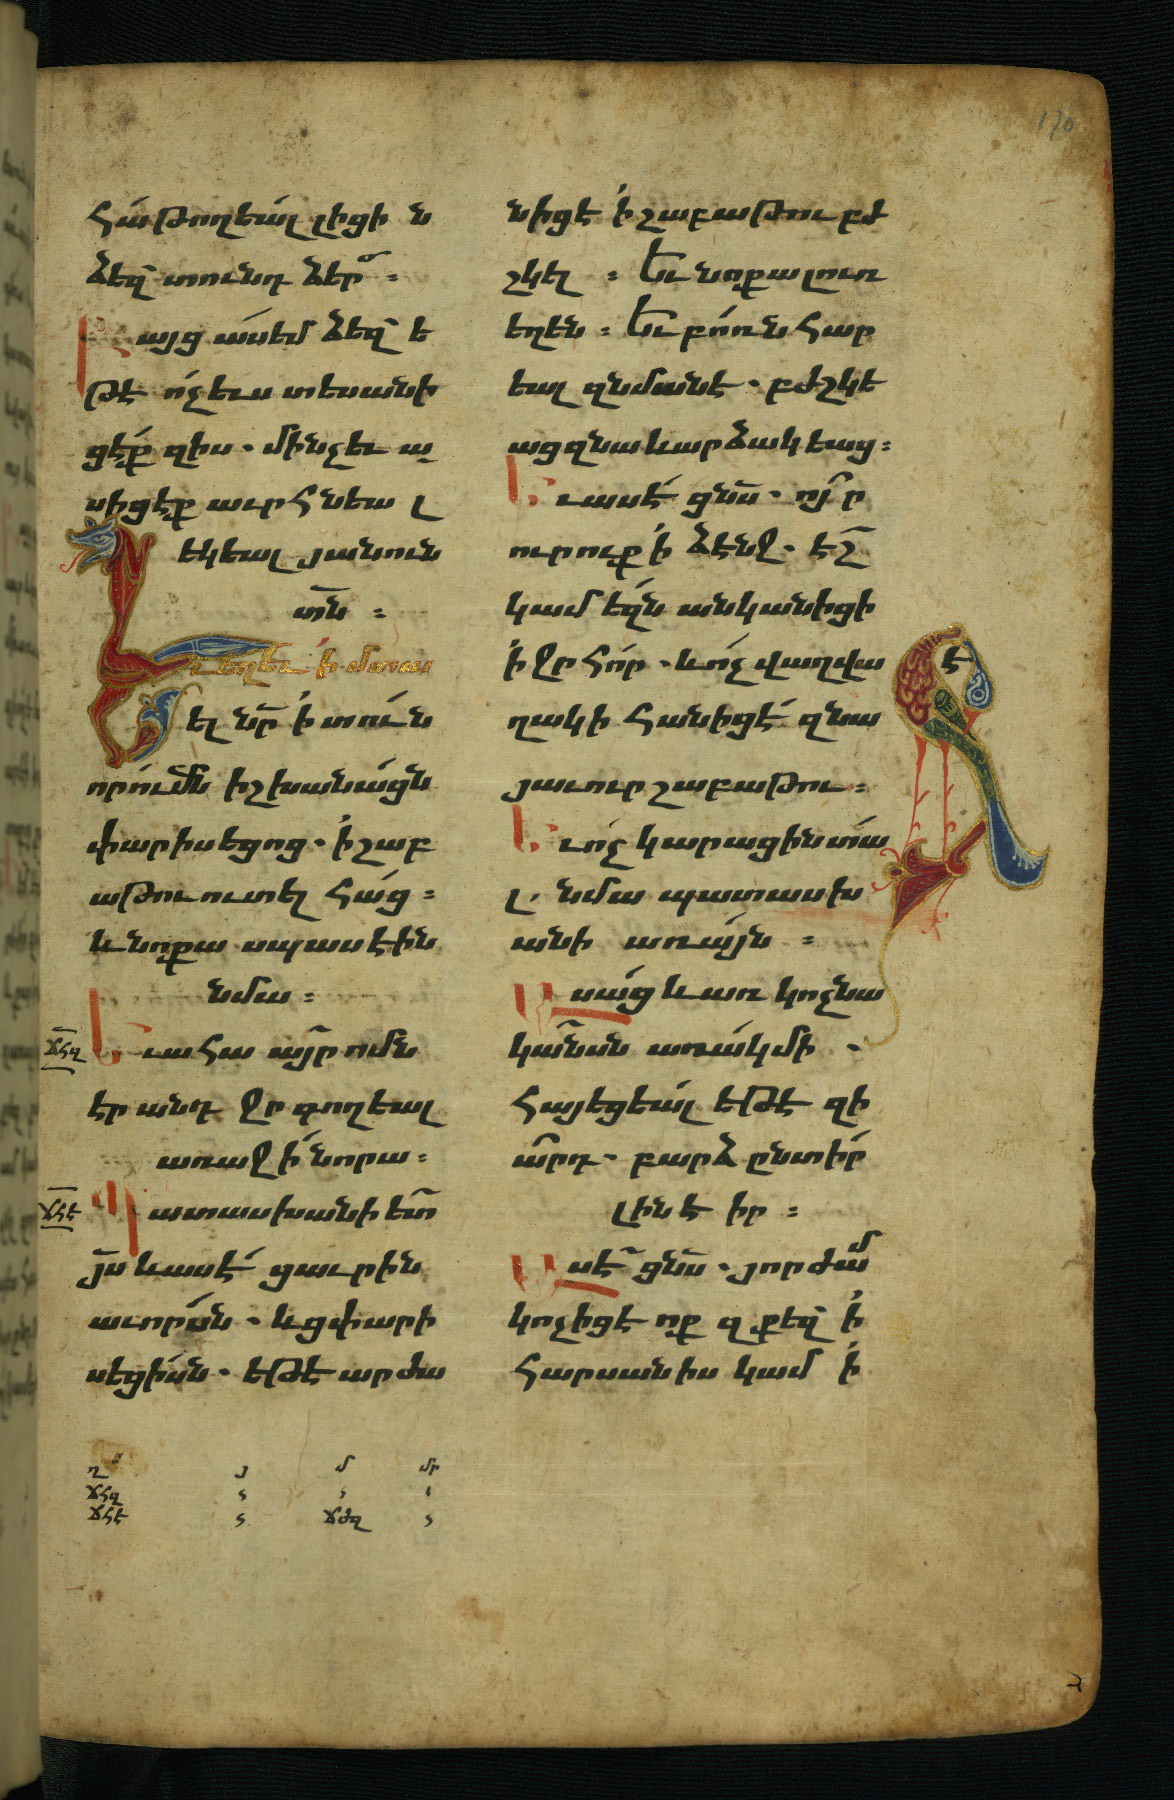 170
Հա թողեալ լիցի ն
ձեզ տունդ ձեր ։
Բայց ասեմ ձեզ ե
թէ ոչ ևս տեսանի
ցէք զիս . մինչև ա
սիցէք աւրհնեա լ
եկեալ յանուն
տն ։
Եւ եղև ի մտա
ել նր ի տուն
որումն իշխանացն
փարիսեցոց . ի շաբ
աթու ուտել հաց ։
և նոքա սպասէին
նմա ։
ՃՀԶ Եւ ահա այր ոմն
էր անդ ջր գողեալ
առաջի նորա ։
ՃՀԷ Պատասխանի ետ
յս և ասէ ցաւրին
աւորսն . և ցփարի
սեցիսն . եթէ արժա
նիցէ ի շաբաթու բժ
շկել ։ Եւ նոքա լուռ
եղեն ։ Եւ բուռն հար
եալ զնմանէ . բժշկե
աց զնա և արձակեաց ։
Եւ ասէ ցնս . ոյր
ուրուք ի ձէնջ . էշ
կամ եզն անկանիցի
ի ջր հոր . և ոչ վաղվա
ղակի հանիցէ զնա
յաւուր շաբաթու ։
Եւ ոչ կարացին տա
լ նմա պատասխ
անի առայն ։
է
Ասաց և առ կոչնա
կանսն առակ մի .
հայեցեալ եթէ զի
արդ . բարձընտիր
լինէ ին ։
Ասէ ցնս . յորժամ
կոչիցէ ոք զքեզ ի
հարսանիս կամ ի
ղ յ մ մր
ՃՀԶ
ՃՀԷ ՃԺԶ